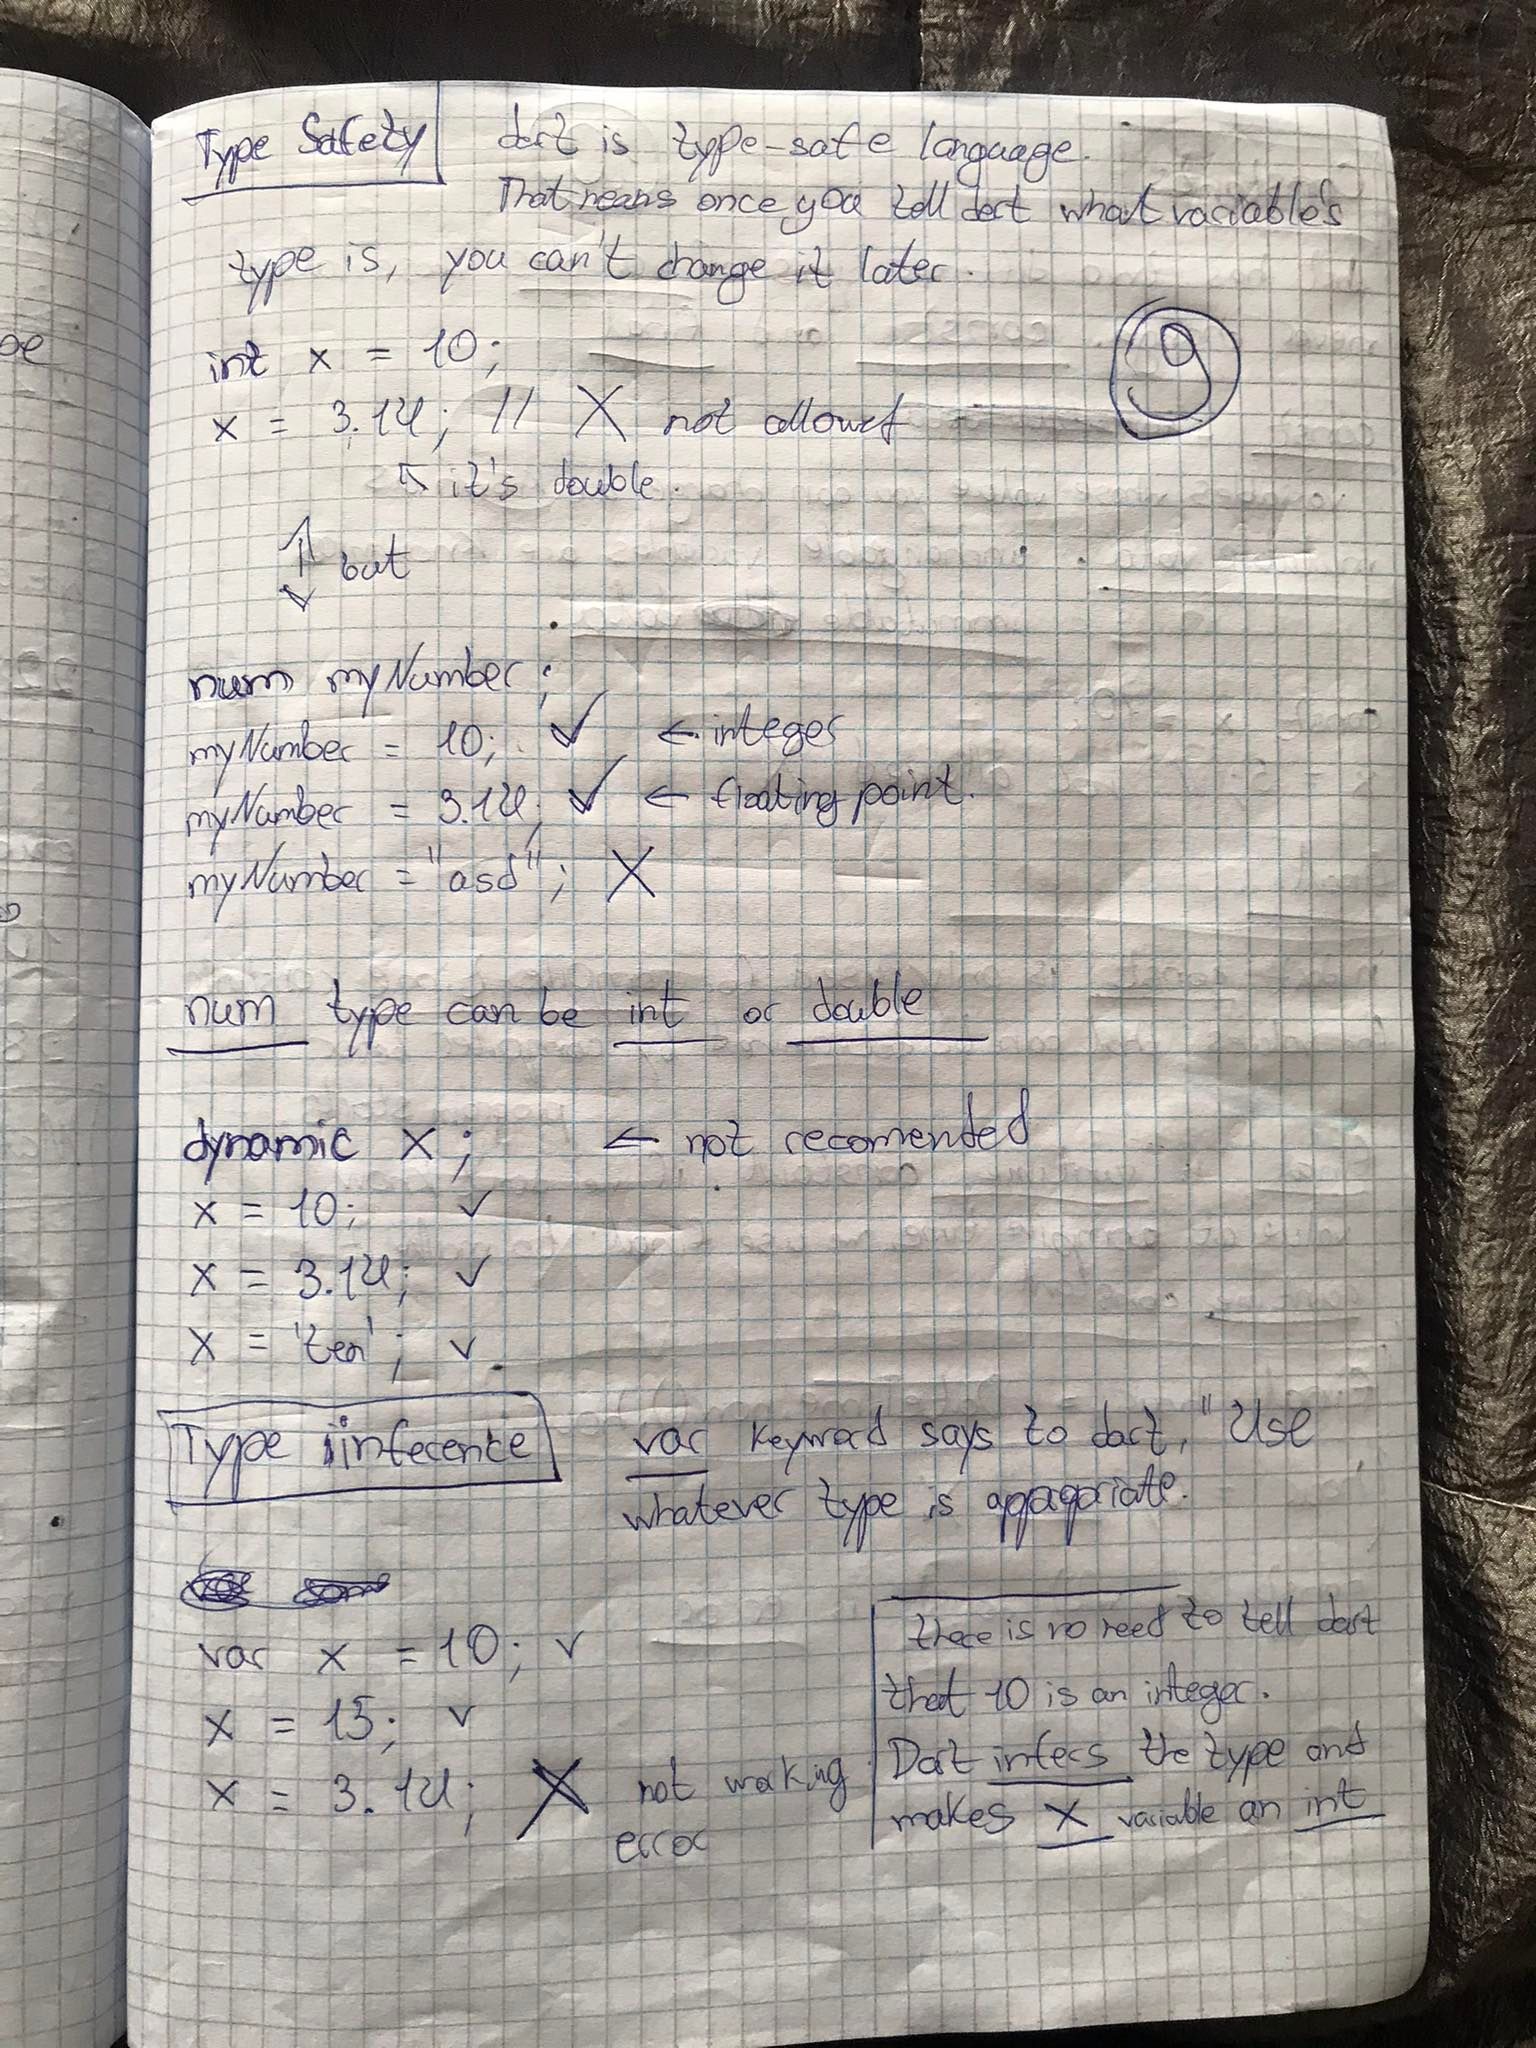 Type Safety
dart is type-safe language.
That means once you tell dart what variable's
type is, you can't change it later.
9
int x = 10;
x = 3.14; // X not allowed
↖ it's double.
↕ but
num myNumber;
myNumber = 10; ✓ ← integer
myNumber = 3.14; ✓ ← floating point.
myNumber = "asd"; X
num type can be int or double
dynamic x; ← not recomended
x = 10; ✓
x = 3.14; ✓
x = 'ten'; ✓
Type inference
var keyword says to dart, "Use
whatever type is
var x = 10; ✓
x = 15; ✓
x = 3.14; X not working
error
there is no need to tell dart
that 10 is an integer.
Dart infers the type and
makes x variable an int